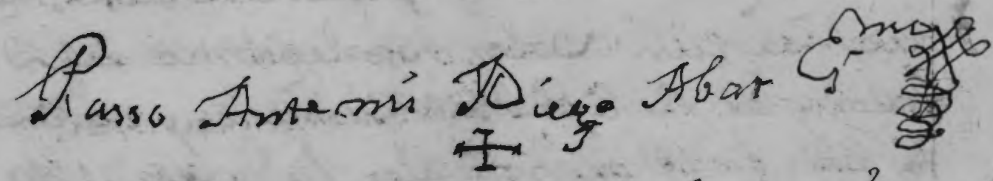 Passo Ante mi Diego Abar